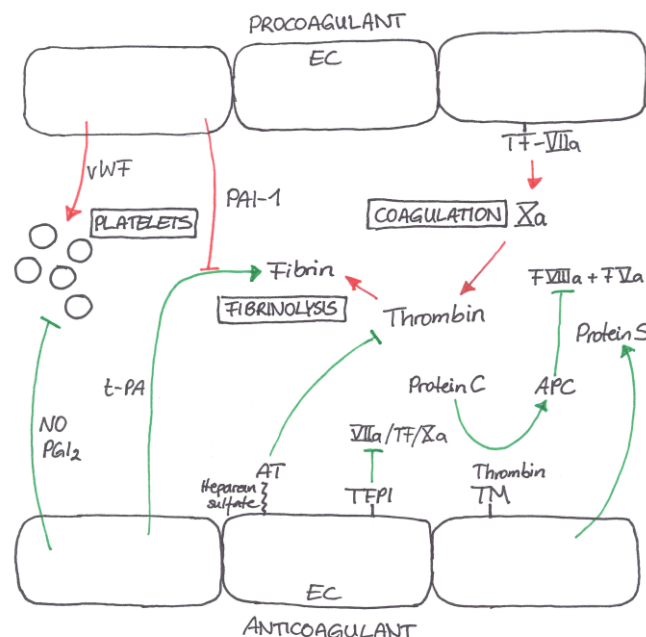 PROCOAGULANT
EC
TF-VIIa
vWF
PAI-1
PLATELETS
COAGULATION Xa
Fibrin
FVIIIa + FVa
FIBRINOLYSIS
Thrombin
Protein S
t-PA
Protein C
APC
NO
PGI₂
VIIa/TF/Xa
AT
Heparan
sulfate
TFPI
Thrombin
TM
EC
ANTICOAGULANT